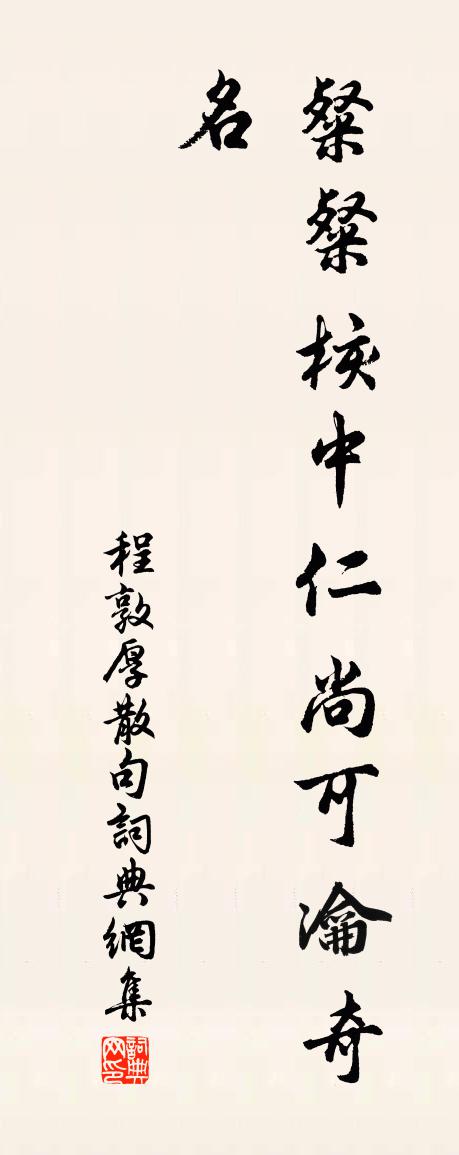 粲粲核中仁尚可瀹奇
名
程敦厚散句詞典網集
詞典
网印